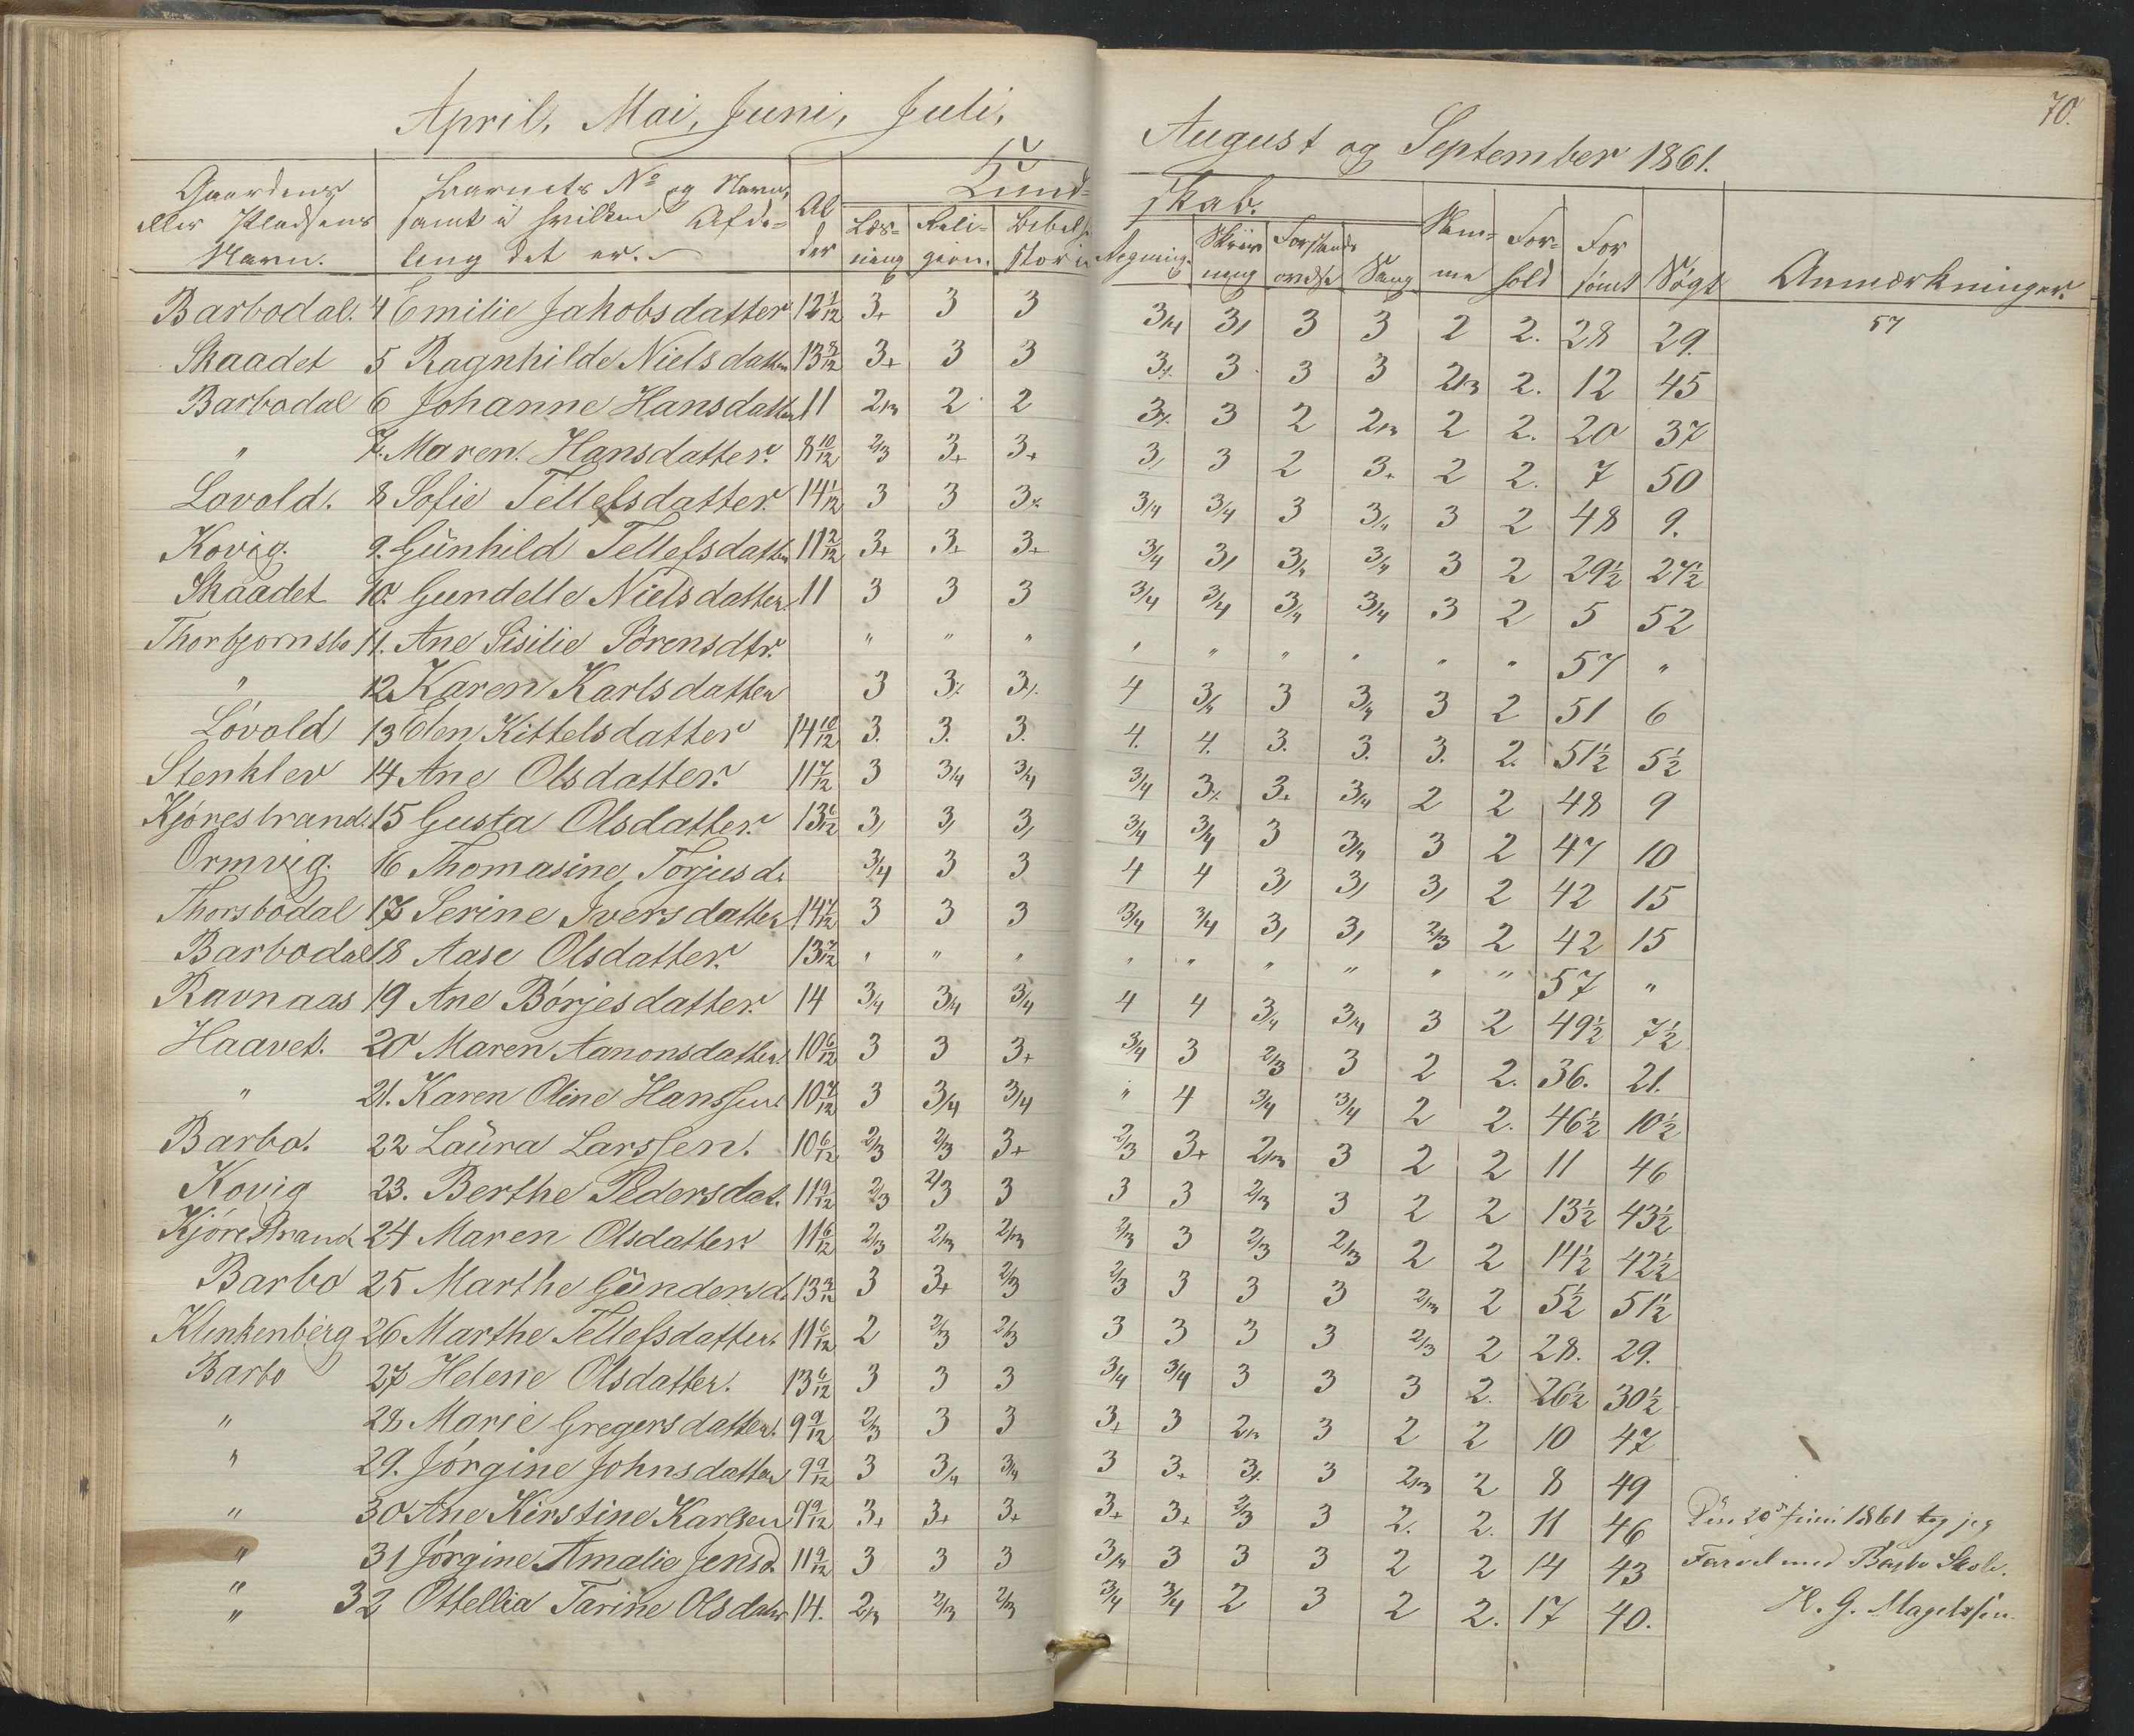 70.
April, Mai, Juni, Juli, August og September 1861.
Gaardens eller Pladsens Navn. | Barnets No og Navn, samt i hvilken Afdeling det er. | Alder | Kundskab. | Læsning | Religion. | Bibelhistorie | Regning. | Skrivning | Forstandsøvelse | Sang | Nemme | Forhold | Forsömt | Søgt | Anmærkninger.
Barbodal. 4 Emilie Jakobsdatter 12 1/12 3+ 3 3 3/4 3/ 3 3 2 2. 28 29. 57
Skaadet 5 Ragnhilde Nielsdatter 13 8/12 3+ 3 3 3 3 3 3 2/3 2. 12 45
Barbodal 6 Johanne Hansdatter 11 2/3 2 2 3 3 2 2/3 2 2. 20 37
" 7. Maren Hansdatter. 8 10/12 2/3 3+ 3+ 3/ 3 2 3+ 2 2. 7 50
Lovold. 8 Sofie Tellefsdatter. 14 1/12 3 3 3 3/4 3/4 3 3/4 3 2 48 9.
Kovig. 9. Günhild Tellefsdatter 11 2/12 3+ 3+ 3+ 3/4 3/ 3/4 3/4 3 2 29½ 27½
Skaadet 10. Gundelle Nielsdatter. 11 3 3 3 3/4 3/4 3/4 3/4 3 2 5 52
Thorbjornsbo 11. Ane Sisilie Sörensdtr. " " " " " " " " " 57 "
" 12 Karen Karlsdatter 3 3 3 4 3/4 3 3/4 3 2 51 6
Lóvold 13 Elen Kittelsdatter 14 10/12 3. 3. 3. 4. 4. 3. 3. 3. 2. 51½ 5½
Stenklev 14 Ane Olsdatter. 11 7/12 3 3/4 3/4 3/4 3 3+ 3/4 2 2 48 9
Kjórestrand. 15 Gusta Olsdatter. 13 6/12 3/ 3/ 3/ 3/4 3/4 3 3/4 3 2 47 10
Ormvig. 16 Thomasine Torjusd. 3/4 3 3 4 4 3/ 3/ 3/ 2 42 15
Thorsbodal 17 Serine Iversdatter 14 7/12 3 3 3 3/4 3/4 3/ 3/ 2/3 2 42 15
Barbodal 18 Aase Olsdatter. 13 7/12 " " " " " " " " " 57 "
Ravnaas 19 Ane Bórjesdatter. 14 3/4 3/4 3/4 4 4 3/4 3/4 3 2 49½ 7½
Haavet. 20 Maren Aanonsdatter. 10 6/12 3 3 3+ 3/4 3 2/3 3 2 2. 36. 21.
" 21. Karen Oline Hanssen. 10 7/12 3 3/4 3/4 " 4 3/4 3/4 2 2. 46½ 10½
Barbo. 22 Laüra Larssen. 10 6/12 2/3 2/3 3+ 2/3 3+ 2/3 3 2 2 11 46
Kovig 23. Berthe Pedersdat. 11 9/12 2/3 2/3 3 3 3 2/3 3 2 2 13½ 43½
Kjöre Strand 24 Maren Olsdatter. 11 6/12 2/3 2/3 2/3 2/3 3 2/3 2/3 2 2 14½ 42½
Barbo 25 Marthe Gündersd. 13 3/12 3 3+ 2/3 2/3 3 3 3 2/3 2 5½ 51½
Klinkenberg 26 Marthe Tellefsdatter. 11 6/12 2 2/3 2/3 3 3 3 3 2/3 2 28. 29.
Barbo 27 Helene Olsdatter. 13 6/12 3 3 3 3/4 3/4 3 3 3 2. 26½ 30½
" 28 Marie Gregersdatter. 9 9/12 2/3 3 3 3+ 3 2/3 3 2 2 10 47
" 29. Jórgine Johnsdatter 9 9/12 3 3/4 3/4 3 3+ 3 3 2/3 2 8 49
" 30 Ane Kirstine Karlsen 9 9/12 3+ 3+ 3+ 3+ 3+ 2/3 3 2. 2. 11 46 Den 20de Juni 1861 tog jeg
" 31 Jórgine Amalie Jensd. 11 9/12 3 3 3 3/4 3 3 3 2 2 14 43 Farvel med Barbo Skole.
" 32 Ottellia Tarine Olsdatr. 14. 2/3 2/3 2/3 3/4 3/4 2 3 2 2. 17 40. H. G. Magelssen